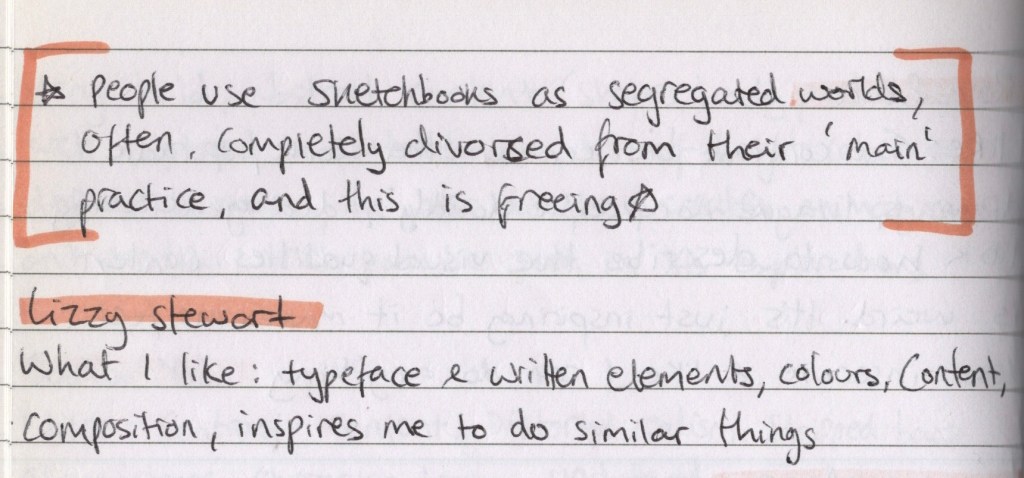 ☆ People use sketchbooks as segregated worlds,
often, completely divorsed from their 'main'
practice, and this is freeing☆
Lizzy Stewart
What I like: typeface & written elements, colours, content,
composition, inspires me to do similar things